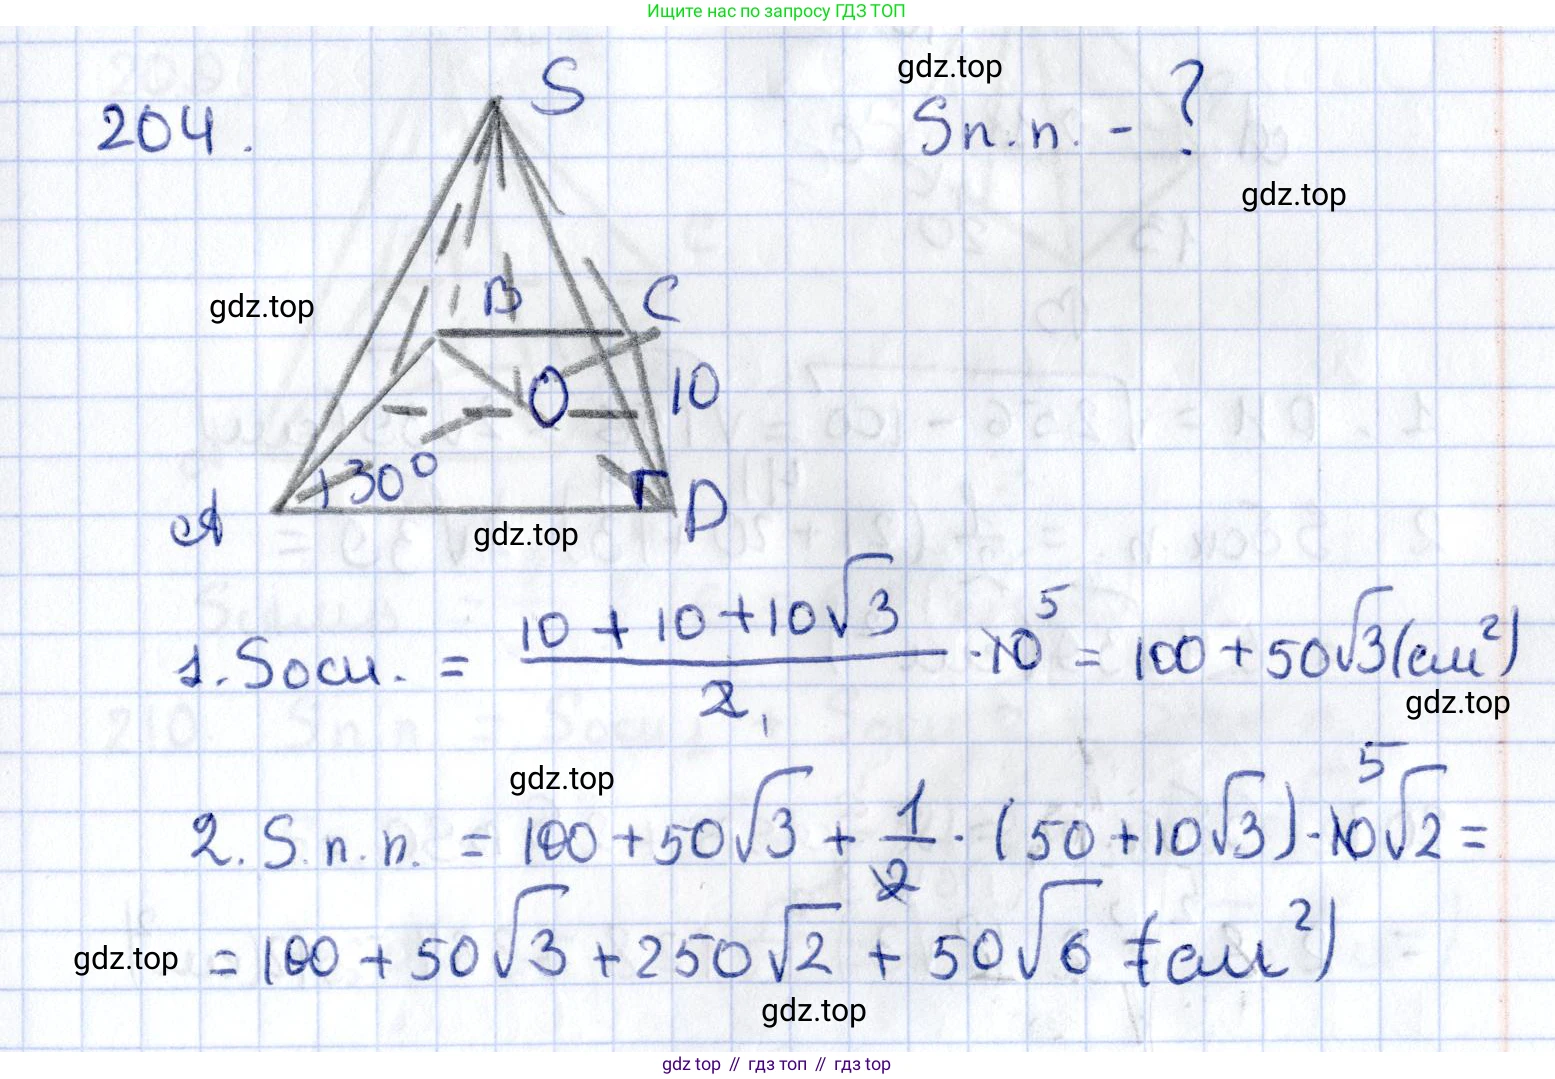 Ищите нас по запросу ГДЗ ТОП
204.
S
gdz.top
Sп.п. - ?
gdz.top
gdz.top
B
C
O
10
30°
A
D
gdz.top
1. Sосн. = (10 + 10 + 10√3)/2 · 10 5 = 100 + 50√3 (см²)
gdz.top
gdz.top
2. S.п.п. = 100 + 50√3 + 1/2 · (50 + 10√3) · 10 5 √2 =
gdz.top
= 100 + 50√3 + 250√2 + 50√6 (см²)
gdz.top
gdz top // гдз топ // гдз top